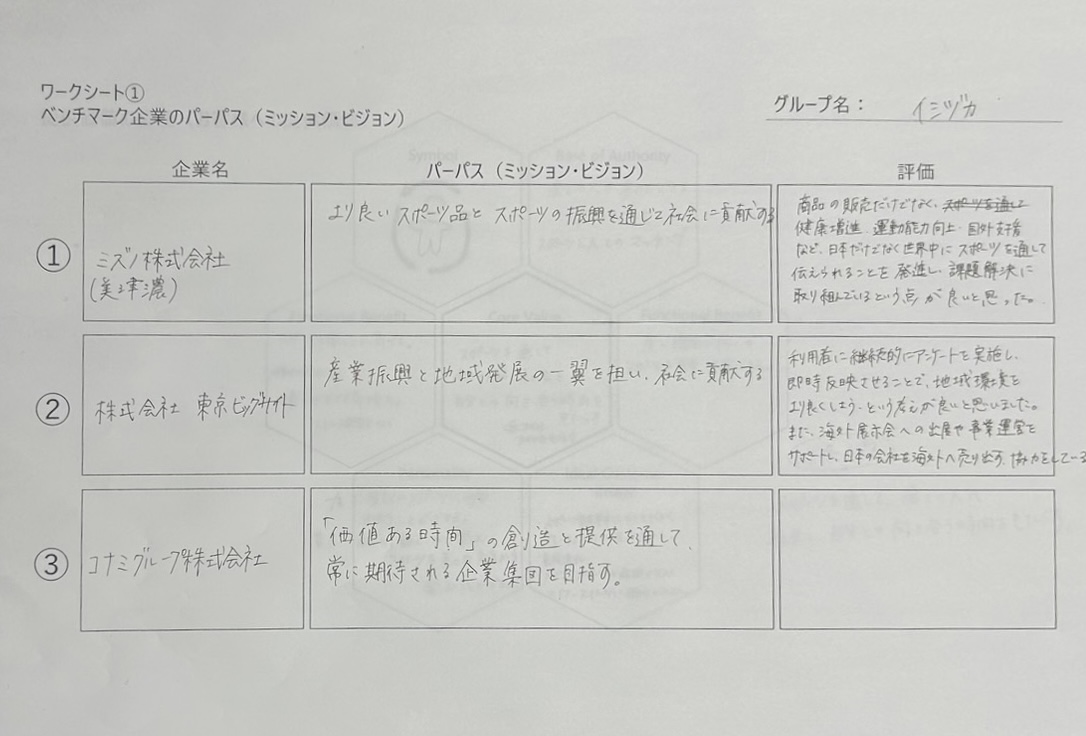 ワークシート①
ベンチマーク企業のパーパス（ミッション・ビジョン）
グループ名：イミヅカ
企業名
パーパス（ミッション・ビジョン）
評価
①
ミズノ株式会社
(美津濃)
より良いスポーツ品とスポーツの振興を通じて社会に貢献する
商品の販売だけでなく、スポーツを通して
健康増進、運動能力向上、国外支援
など、日本だけでなく世界中にスポーツを通して
伝えられることを発進し、課題解決に
取り組んでいるという点が良いと思った。
②
株式会社 東京ビッグサイト
産業振興と地域発展の一翼を担い、社会に貢献する
利用者に継続的にアンケートを実施し、
即時反映させることで、地域環境を
より良くしよう、という考えが良いと思いました。
また、海外展示会への出展や事業運営を
サポートし、日本の会社を海外へ売り出す、協力をして
③
コナミグループ株式会社
「価値ある時間」の創造と提供を通して、
常に期待される企業集団を目指す。
Symbol